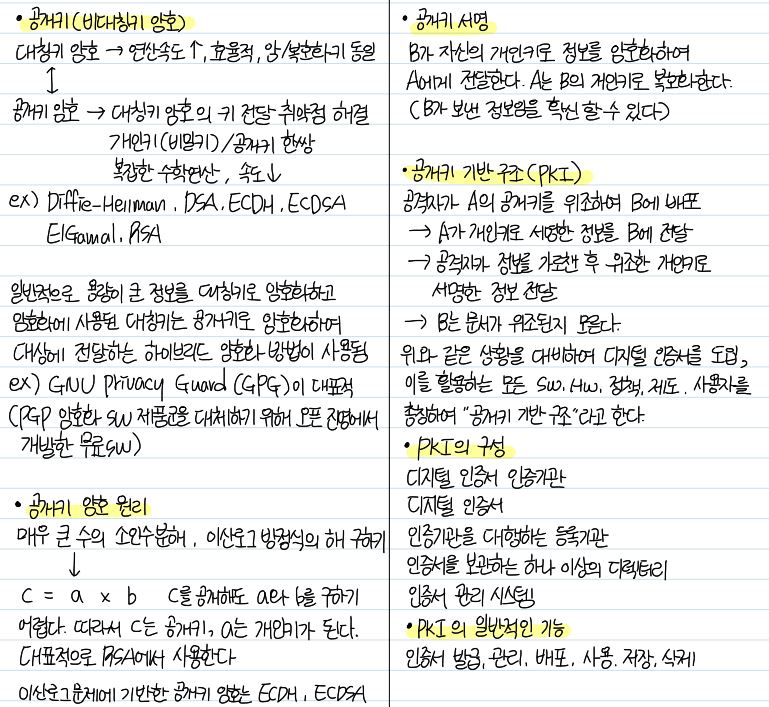 • 공개키(비대칭키 암호)
대칭키 암호 → 연산속도↑, 효율적, 암/복호화키 동일
↕
공개키 암호 → 대칭키 암호의 키 전달 취약점 해결
개인키(비밀키)/공개키 한쌍
복잡한 수학연산, 속도↓
ex) Diffie-Hellman, DSA, ECDH, ECDSA
ElGamal, RSA
일반적으로 용량이 큰 정보를 대칭키로 암호화하고
암호화에 사용된 대칭키는 공개키로 암호화하여
대상에 전달하는 하이브리드 암호화 방법이 사용됨
ex) GNU Privacy Guard (GPG)이 대표적
(PGP 암호화 SW 제품군을 대체하기 위해 오픈 진영에서
개발한 무료SW)
• 공개키 암호 원리
매우 큰 수의 소인수분해, 이산로그 방정식의 해 구하기
↓
c = a x b c를 공개해도 a와 b를 구하기
어렵다. 따라서 c는 공개키, a는 개인키가 된다.
대표적으로 RSA에서 사용한다
이산로그문제에 기반한 공개키 암호는 ECDH, ECDSA
• 공개키 서명
B가 자신의 개인키로 정보를 암호화하여
A에게 전달한다. A는 B의 개인키로 복호화한다.
(B가 보낸 정보임을 확신 할 수 있다)
• 공개키 기반 구조(PKI)
공격자가 A의 공개키를 위조하여 B에 배포
→ A가 개인키로 서명한 정보를 B에 전달
→ 공격자가 정보를 가로챈 후 위조한 개인키로
서명한 정보 전달
→ B는 문서가 위조된지 모른다.
위와 같은 상황을 대비하여 디지털 인증서를 도입,
이를 활용하는 모든 SW, HW, 정책, 제도, 사용자를
총칭하여 "공개키 기반 구조"라고 한다.
• PKI의 구성
디지털 인증서 인증기관
디지털 인증서
인증기관을 대행하는 등록기관
인증서를 보관하는 하나 이상의 디렉터리
인증서 관리 시스템
• PKI의 일반적인 기능
인증서 발급, 관리, 배포, 사용, 저장, 삭제